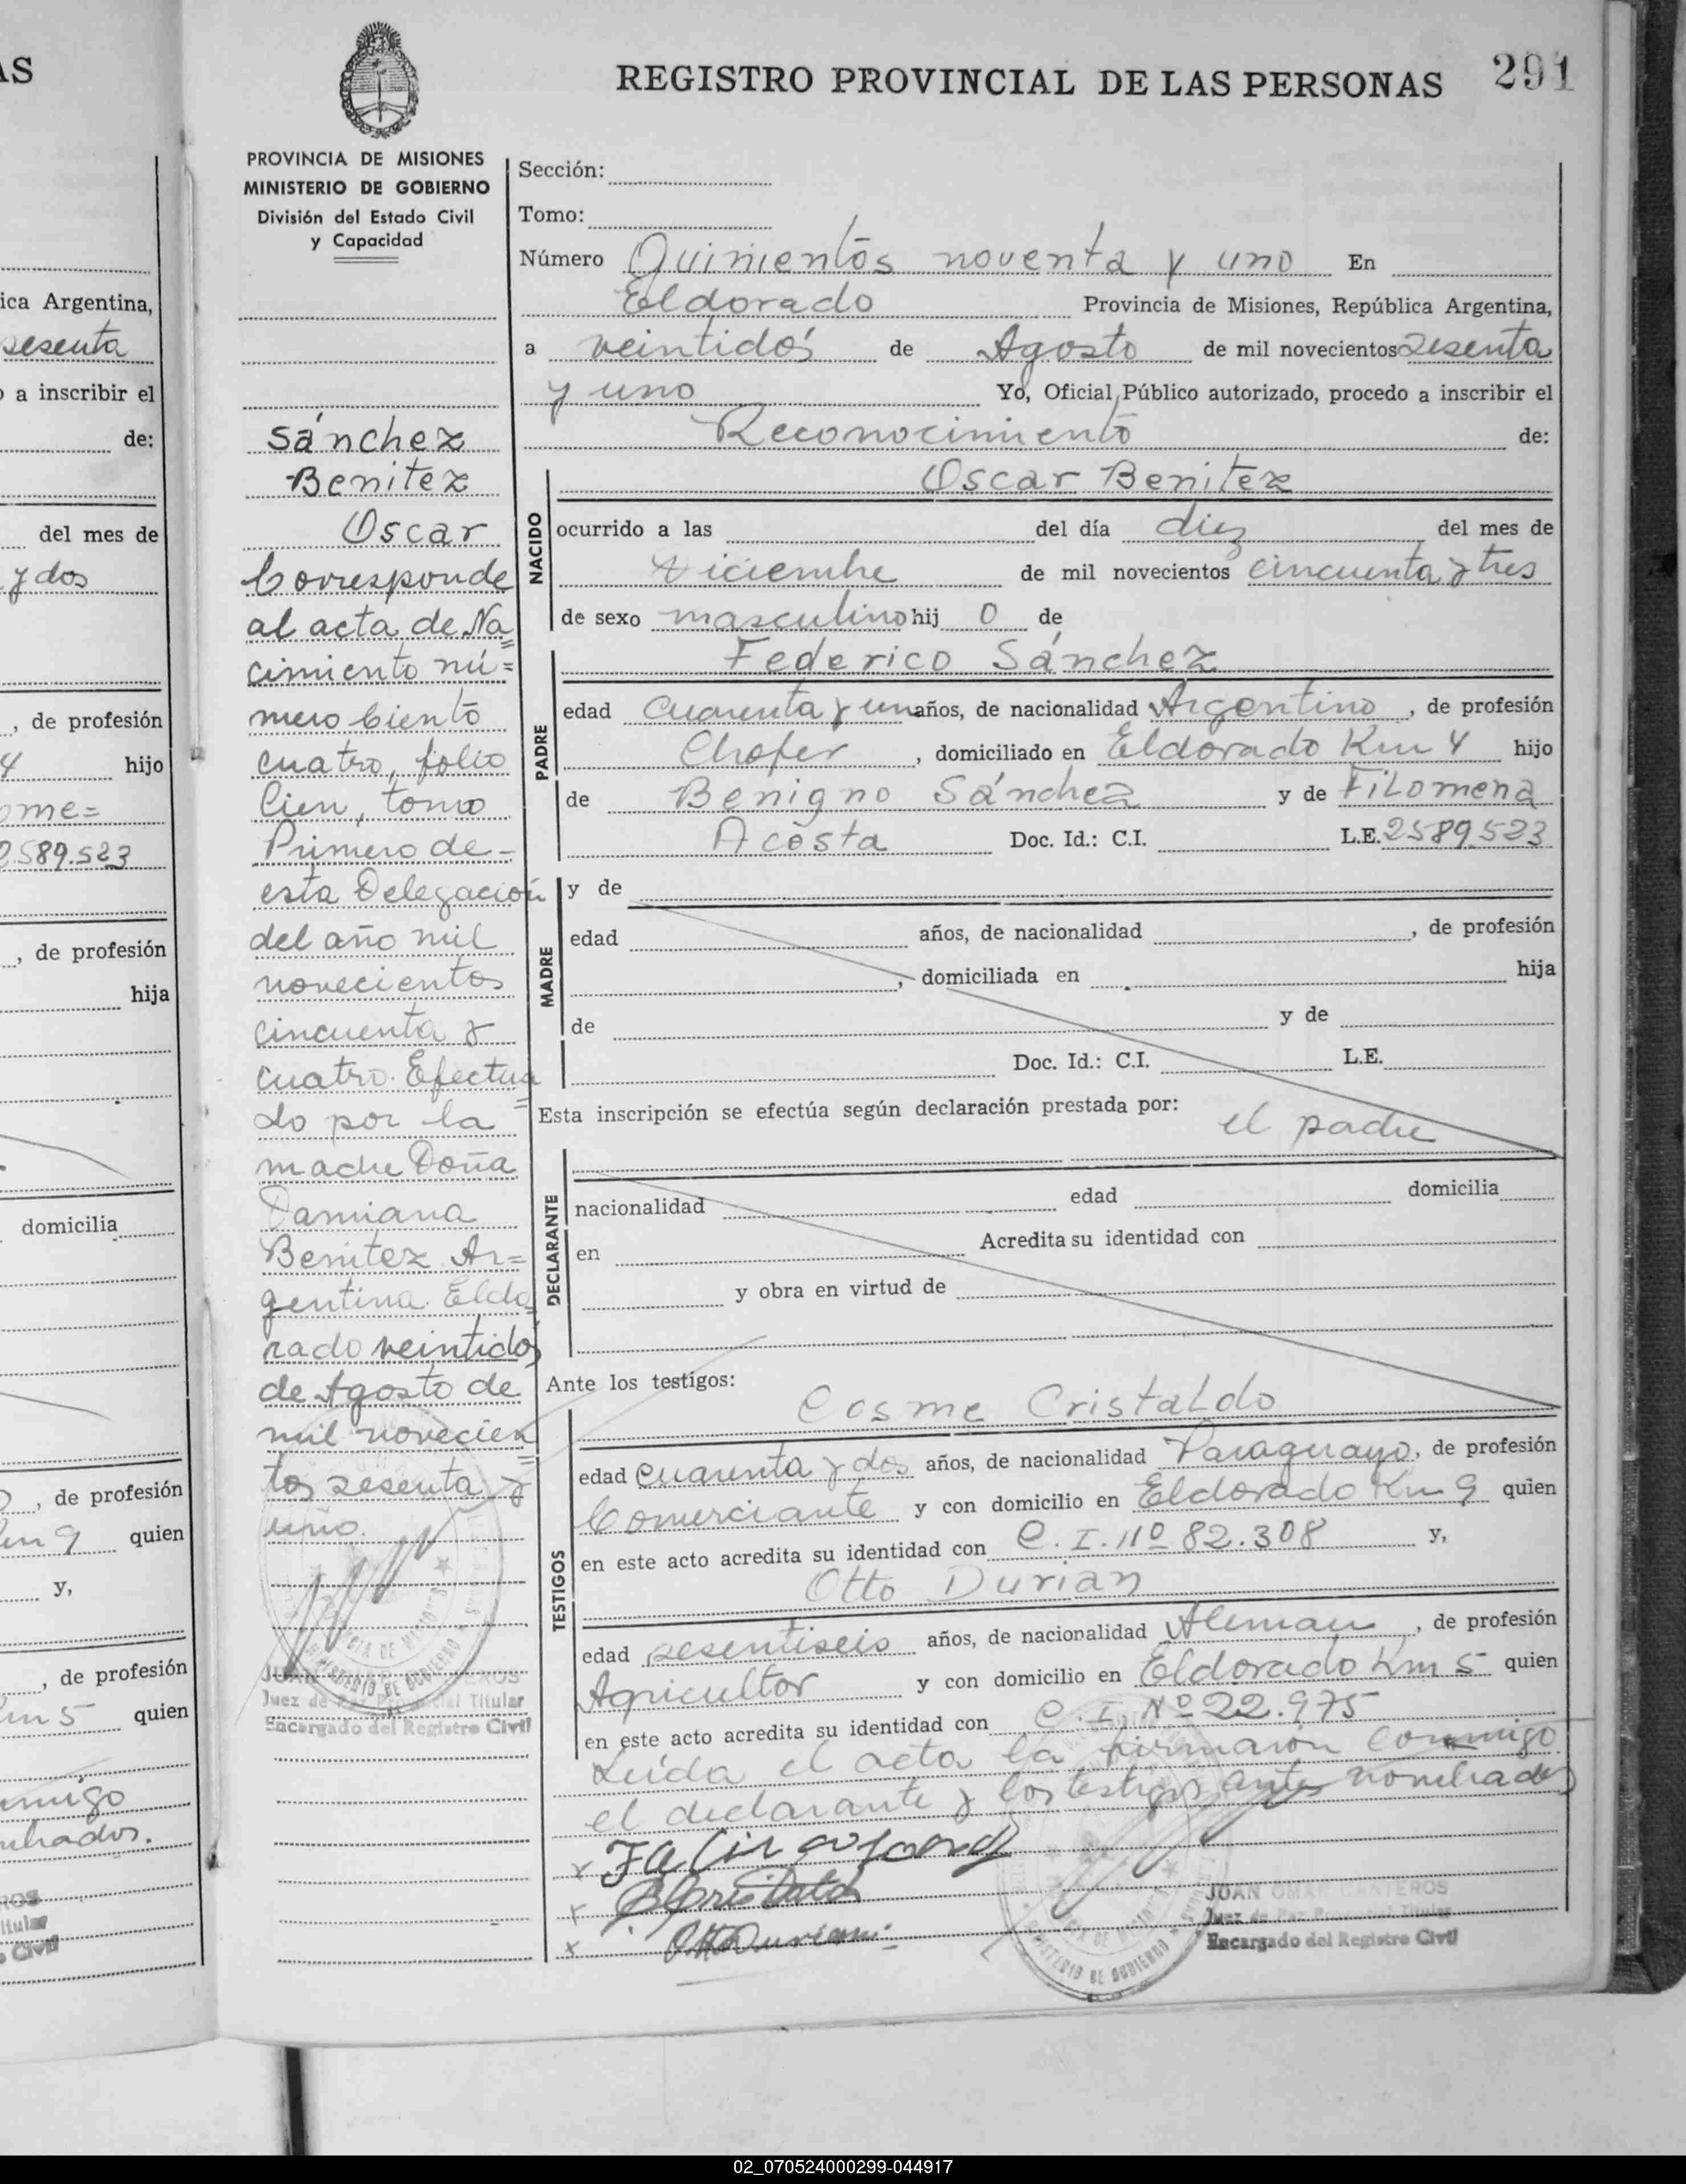 AS
ica Argentina,
sesenta
o a inscribir el
de:
del mes de
y dos
, de profesión
4 hijo
ome=
2.589.523
, de profesión
hija
domicilia
, de profesión
Km 9 quien
y,
, de profesión
Km 5 quien
nmigo
mbrados.
ROS
itular
Civil
PROVINCIA DE MISIONES
MINISTERIO DE GOBIERNO
División del Estado Civil
y Capacidad
Sánchez
Benitez
Oscar
Corresponde
al acta de Na=
cimiento nú=
mero Ciento
cuatro, folio
Cien, tomo
Primero de-
esta Delegación
del año mil
novecientos
cincuenta y
cuatro. Efectua=
do por la
madre Doña
Damiana
Benitez Ar=
gentina. Eldo=
rado veintidos
de Agosto de
mil novecien=
tos sesenta y
uno.
Juez de Paz Provincial Titular
Encargado del Registro Civil
REGISTRO PROVINCIAL DE LAS PERSONAS 291
Sección:
Tomo:
Número Quinientos noventa y uno En
Eldorado Provincia de Misiones, República Argentina,
a veintidós de Agosto de mil novecientos sesenta
y uno Yo, Oficial Público autorizado, procedo a inscribir el
Reconocimiento de:
Oscar Benitez
NACIDO
ocurrido a las del día diez del mes de
Diciembre de mil novecientos cincuenta y tres
de sexo masculino hij o de
Federico Sánchez
PADRE
edad Cuarenta y un años, de nacionalidad Argentino, de profesión
Chofer, domiciliado en Eldorado Km 4 hijo
de Benigno Sánchez y de Filomena
Acosta Doc. Id.: C.I. L.E. 2589.523
MADRE
y de
edad años, de nacionalidad , de profesión
, domiciliada en hija
de y de
Doc. Id.: C.I. L.E.
Esta inscripción se efectúa según declaración prestada por: el padre
DECLARANTE
nacionalidad edad domicilia
en Acredita su identidad con
y obra en virtud de
Ante los testigos:
Cosme Cristaldo
TESTIGOS
edad Cuarenta y dos años, de nacionalidad Paraguayo, de profesión
Comerciante y con domicilio en Eldorado Km 9 quien
en este acto acredita su identidad con C.I. Nº 82.308 y,
Otto Durian
edad sesentiseis años, de nacionalidad Aleman, de profesión
Agricultor y con domicilio en Eldorado Km 5 quien
en este acto acredita su identidad con C.I. Nº 22.975
Leída el acta la firmaron conmigo
el declarante y los testigos antes nombrados
x
x
x Otto Durian
JUAN OMAR CANTEROS
Juez de Paz Provincial Titular
Encargado del Registro Civil
MINISTERIO DE GOBIERNO
02_070524000299-044917